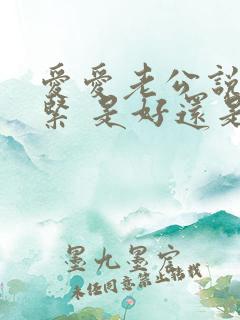 愛愛老公說
緊 是好還是
墨九墨宮
未经同意禁止转载